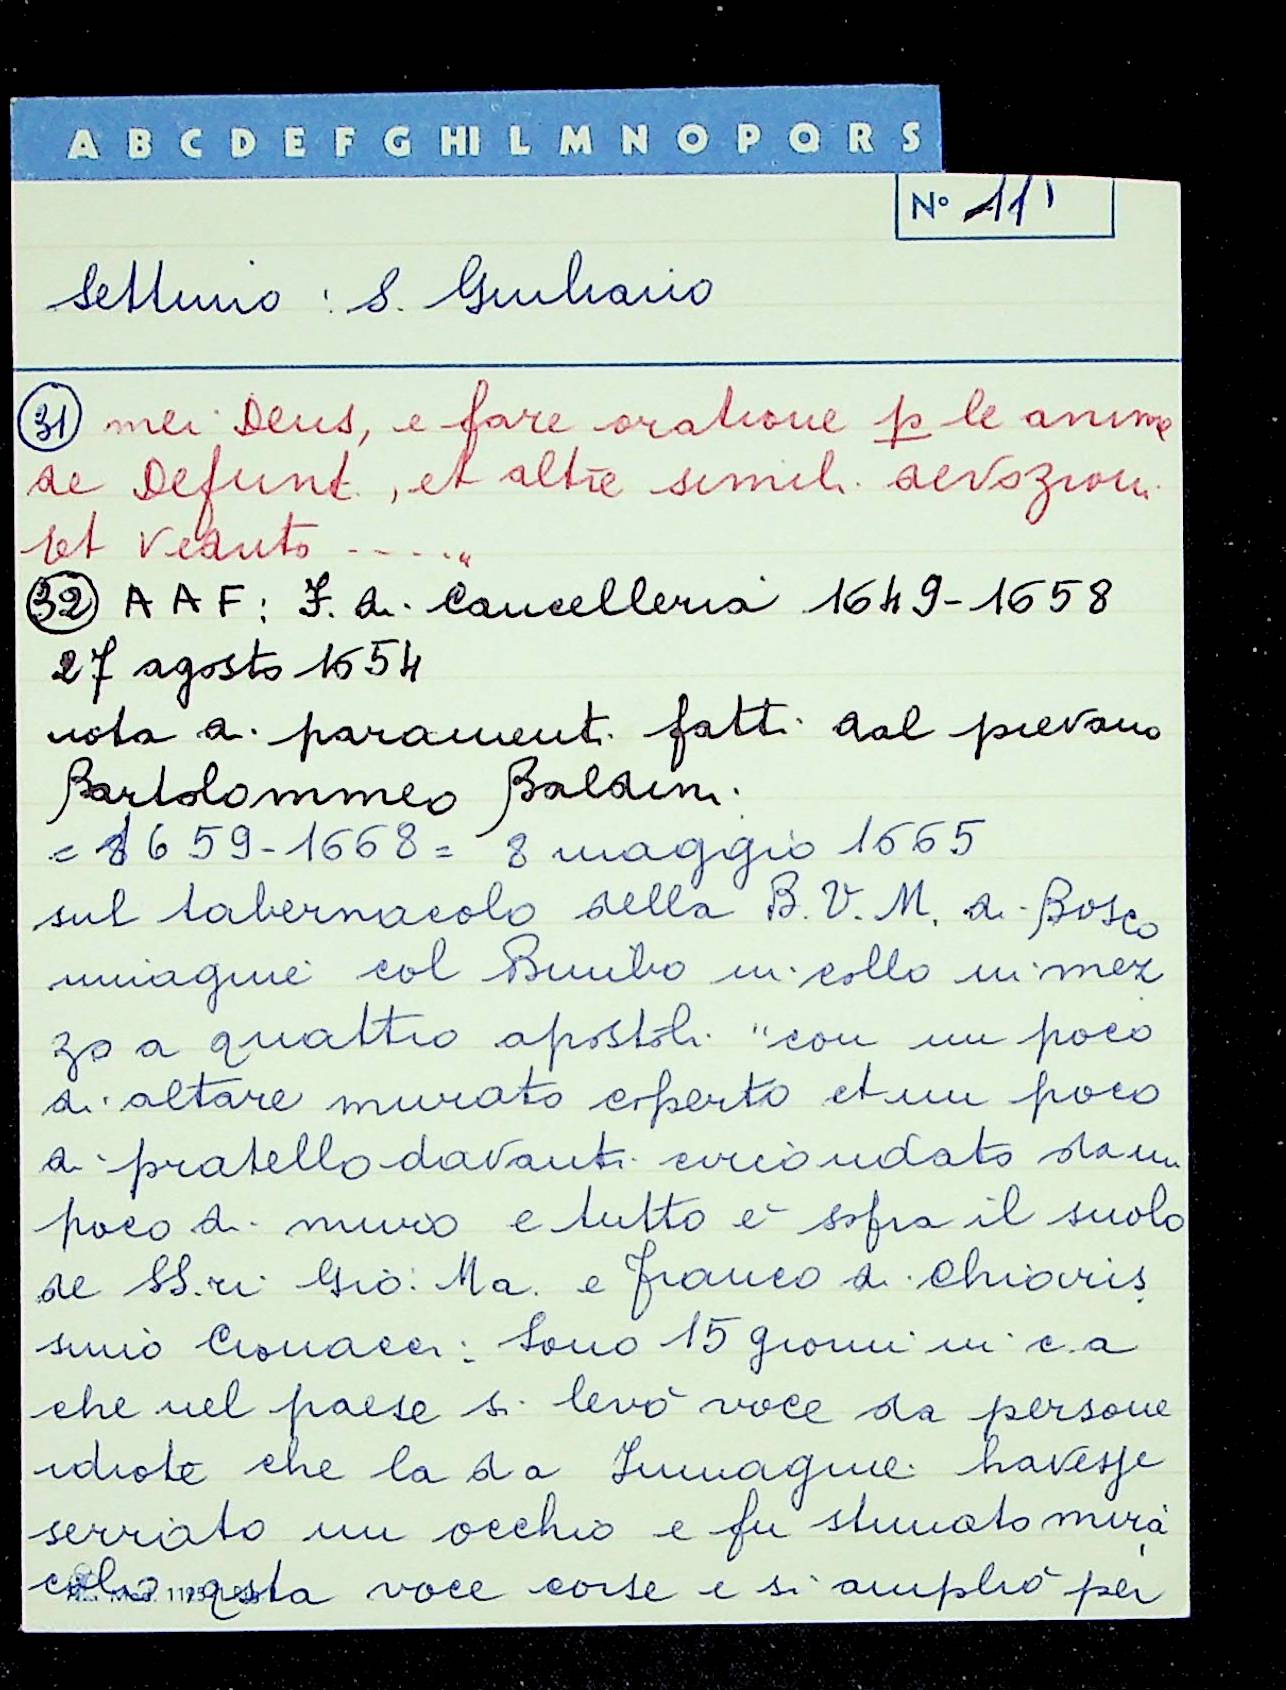 A B C D E F G HI L M N O P Q R S
N° 11'
Settimo : S. Giuliano
31 mei Deus, e fare oratione p le anime
de Defunt., et altre simili devozioni
et veduto -----"
32 A A F : F. di Cancelleria 1649-1658
27 agosto 1654
nota di paramenti fatti dal pievano
Bartolommeo Baldini.
= 1659-1668 = 8 maggio 1665
sul tabernacolo della B. V. M. di Bosco
imagine col Bimbo in collo in mez
zo a quattro apostoli "con un poco
di altare murato coperto et un poco
di pratello davanti circondato da un
poco di muro e tutto è sopra il suolo
de SS.ri Gio: Ma. e Franco di Chiaris
simo Cionacci: Sono 15 giorni in c.a
che nel paese si levò voce da persone
idiote che la da Immagine havesse
serrato un occhio e fu stimato mira
colo qsta voce corse e si ampliò per